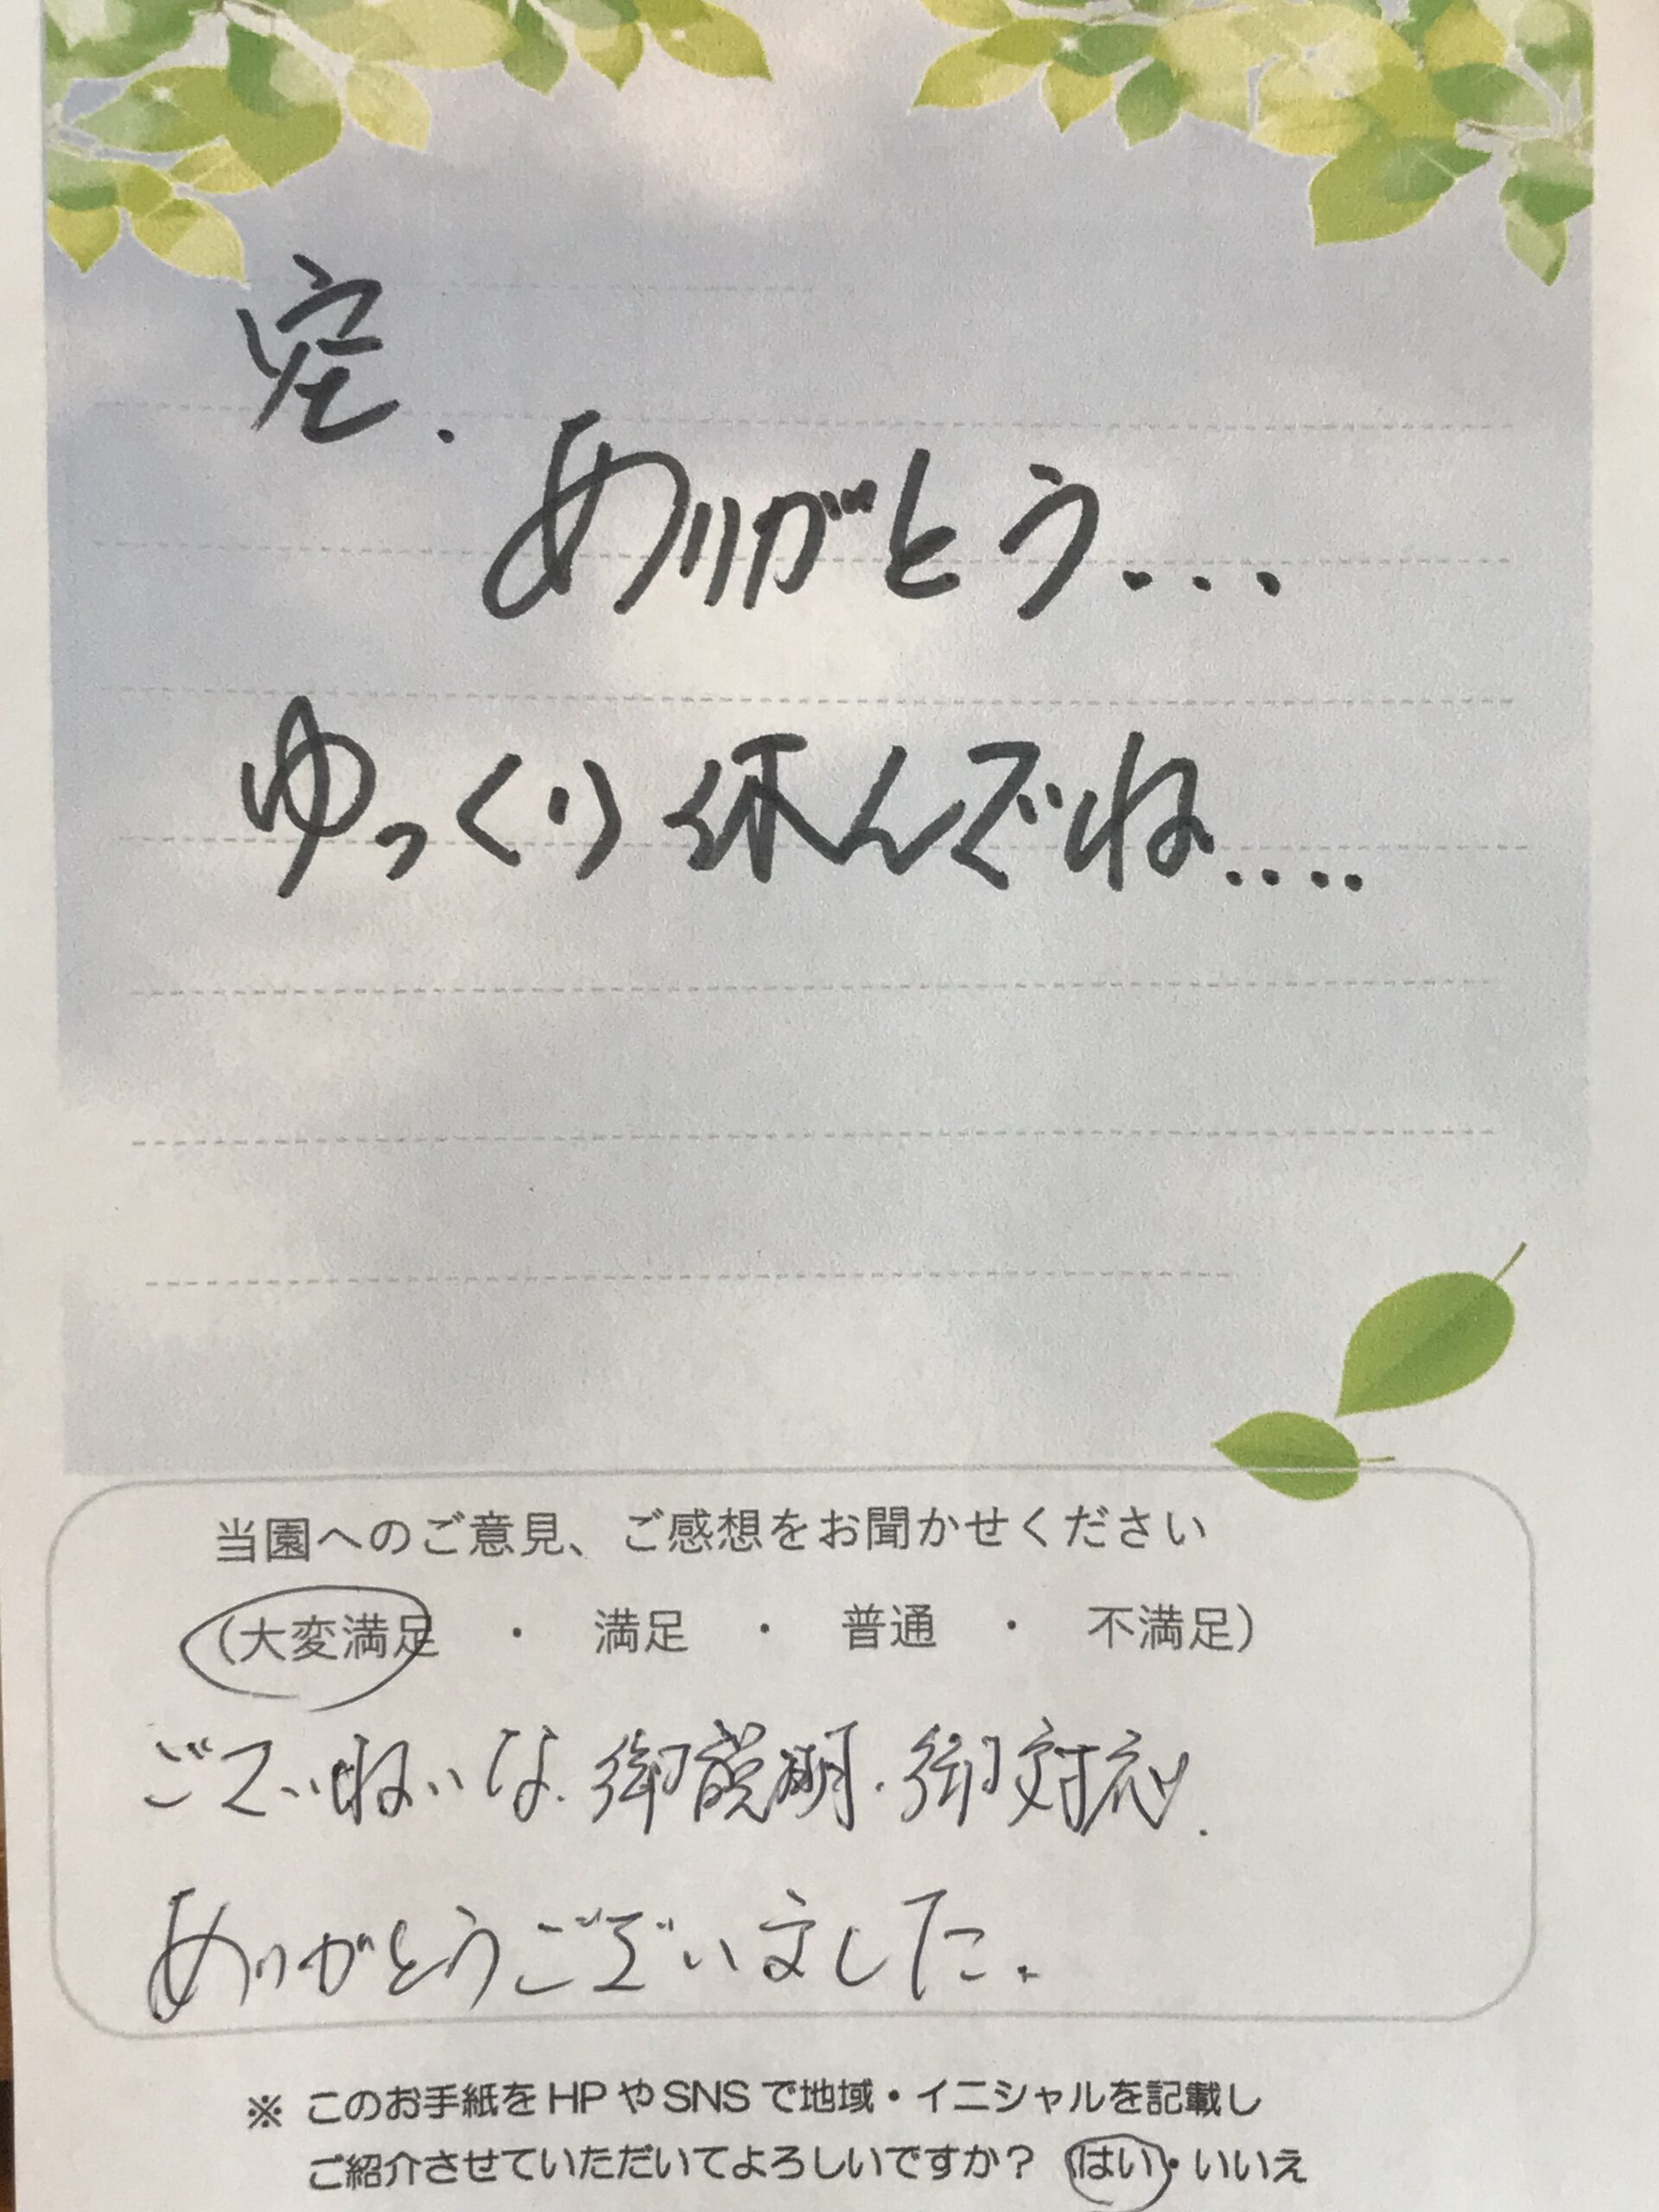 空.
ありがとう...
ゆっくり休んでね....
当園へのご意見、ご感想をお聞かせください
(大変満足 ・ 満足 ・ 普通 ・ 不満足)
ごていねいな.御説明.御対応.
ありがとうございました.
※ このお手紙をHPやSNSで地域・イニシャルを記載し
ご紹介させていただいてよろしいですか? はい・いいえ